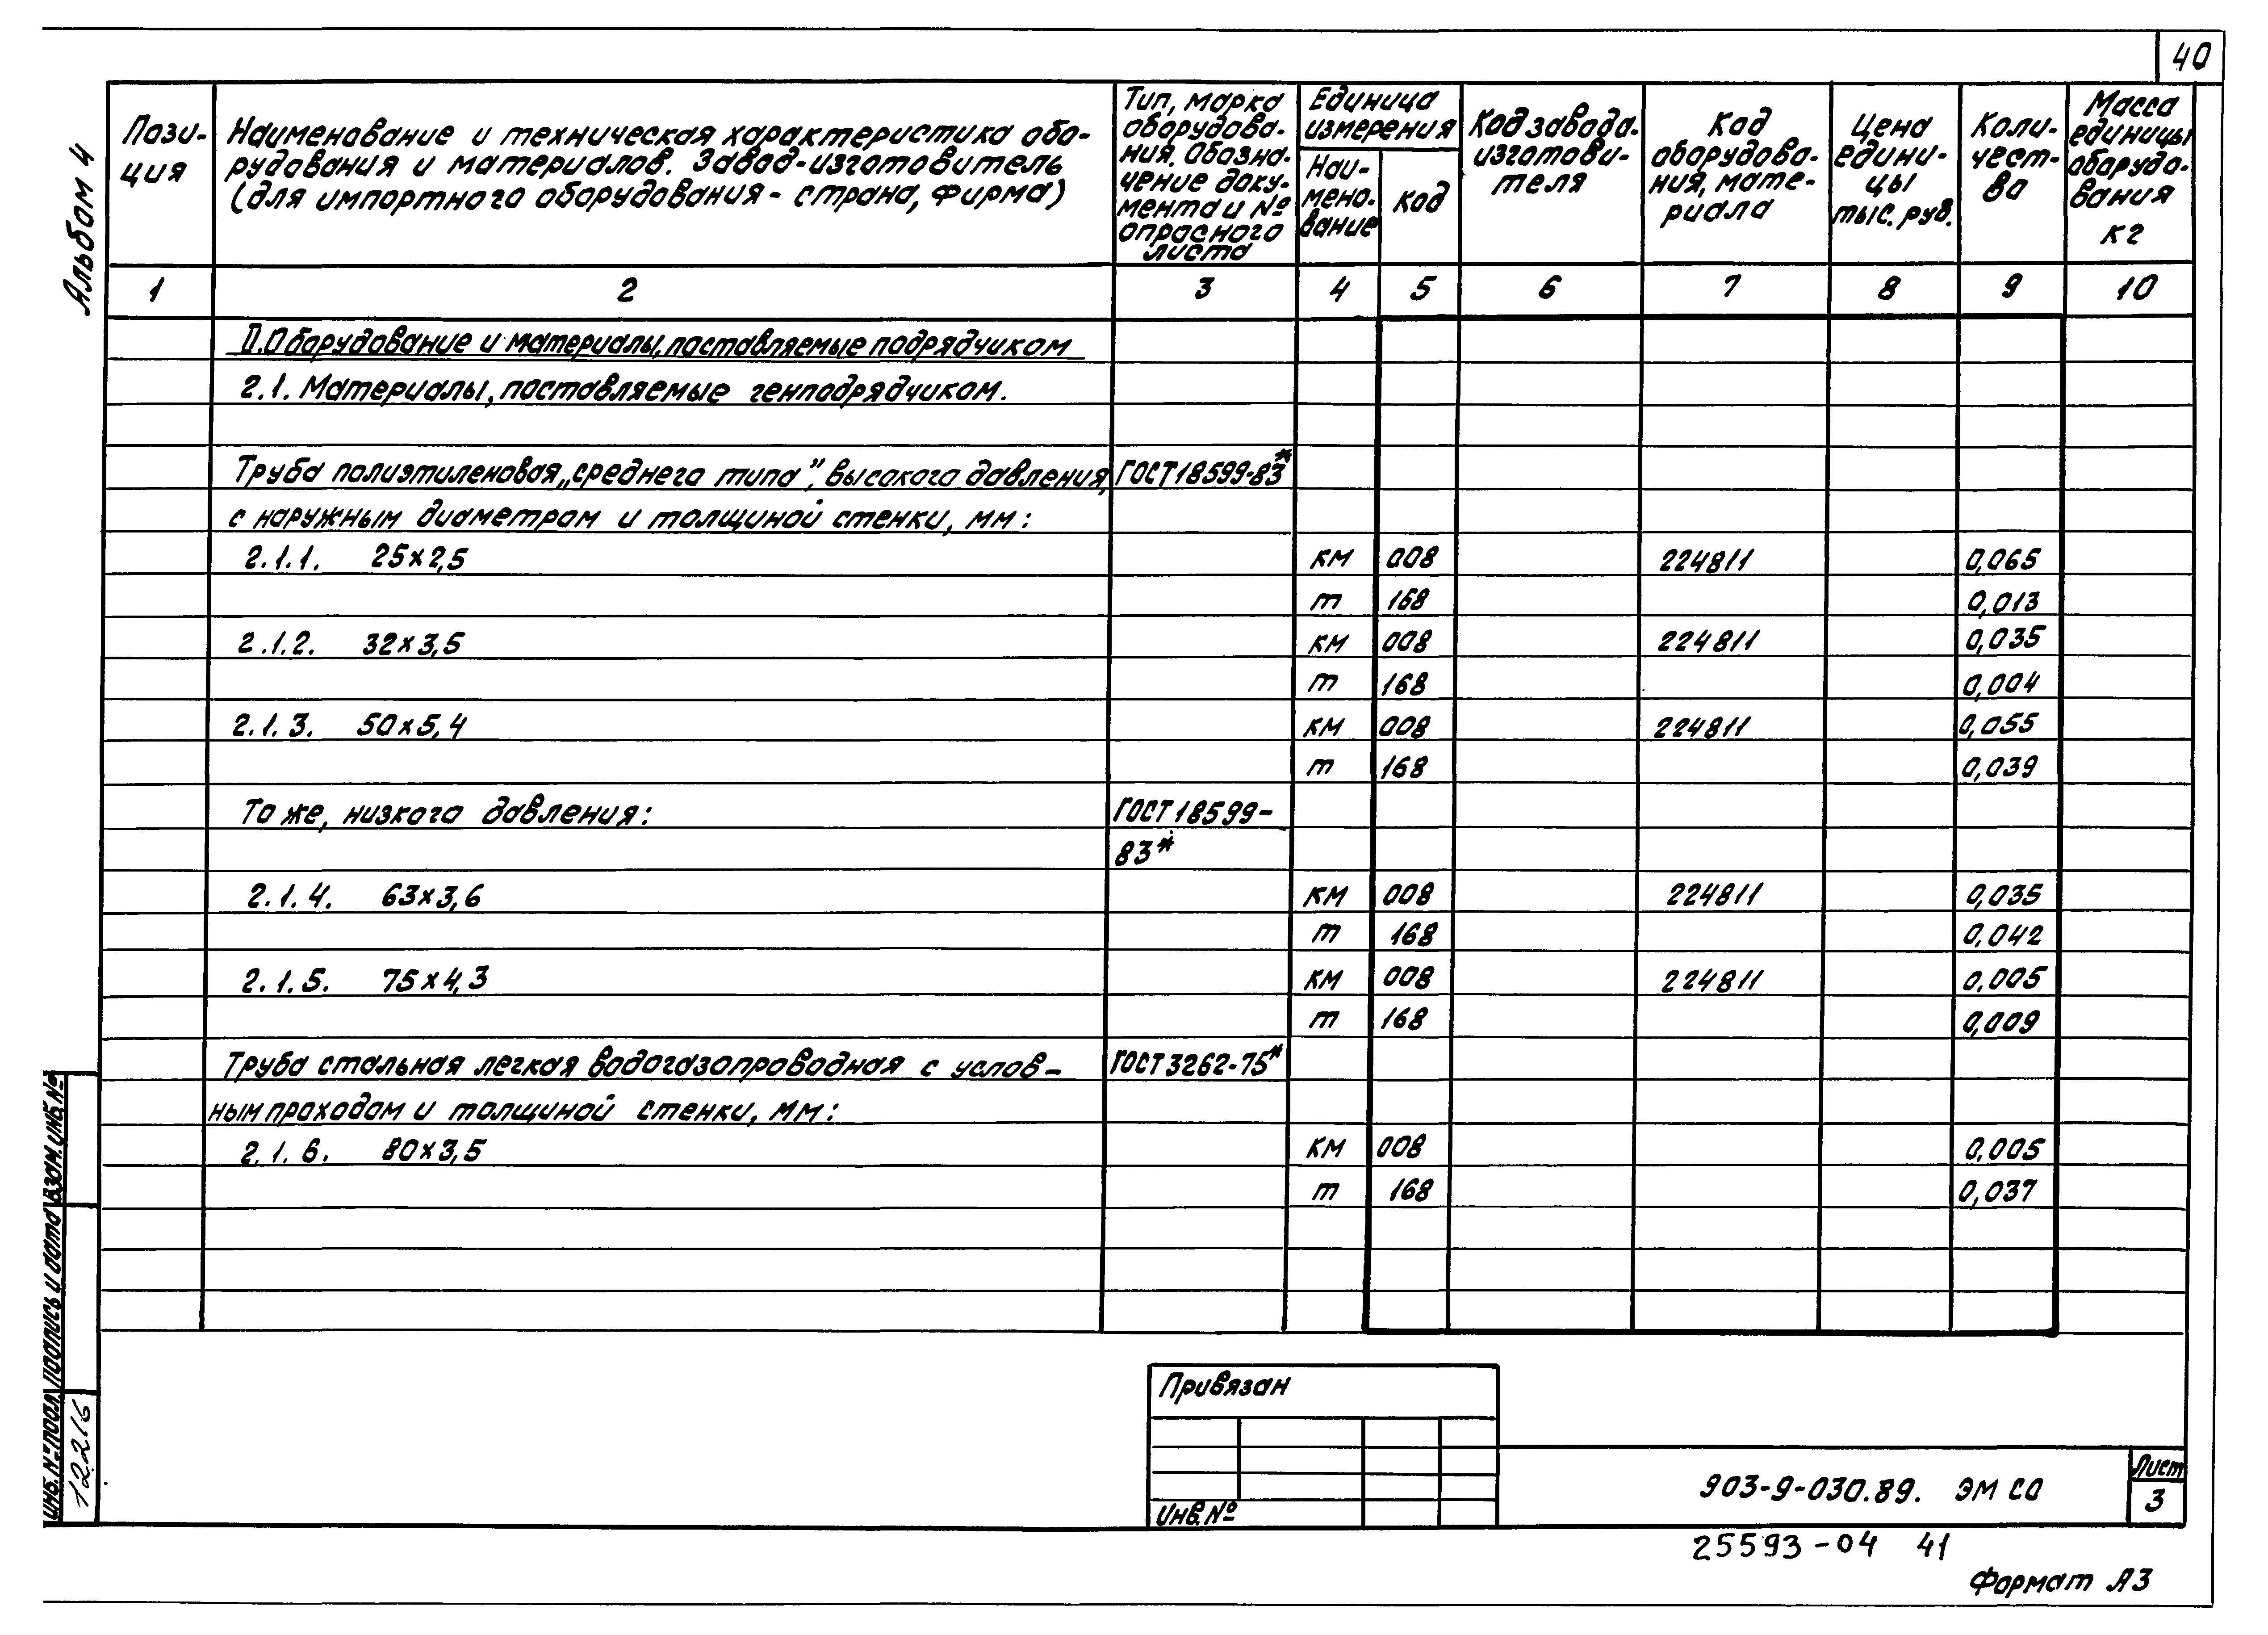 40
Альбом 4
Пози-
ция
Наименование и техническая характеристика обо-
рудования и материалов. Завод-изготовитель
(для импортного оборудования - страна, фирма)
Тип, марка
оборудова-
ния. Обозна-
чение доку-
мента и №
опросного
листа
Единица
измерения
Наи-
мено-
вание
Код
Код завода-
изготови-
теля
Код
оборудова-
ния, мате-
риала
Цена
едини-
цы
тыс. руб.
Коли-
чест-
во
Масса
единицы
оборудо-
вания
кг
1 2 3 4 5 6 7 8 9 10
II. Оборудование и материалы, поставляемые подрядчиком
2.1. Материалы, поставляемые генподрядчиком.
Труба полиэтиленовая „среднего типа", высокого давления, ГОСТ 18599-83*
с наружным диаметром и толщиной стенки, мм:
2.1.1. 25×2,5 км 008 224811 0,065
т 168 0,013
2.1.2. 32×3,5 км 008 224811 0,035
т 168 0,004
2.1.3. 50×5,4 км 008 224811 0,055
т 168 0,039
То же, низкого давления: ГОСТ 18599-
83*
2.1.4. 63×3,6 км 008 224811 0,035
т 168 0,042
2.1.5. 75×4,3 км 008 224811 0,005
т 168 0,009
Труба стальная легкая водогазопроводная с услов- ГОСТ 3262-75*
ным проходом и толщиной стенки, мм:
2.1.6. 80×3,5 км 008 0,005
т 168 0,037
Взам. инв. №
Подпись и дата
Инв. № подл.
12216
Привязан
Инв. №
903-9-030.89. ЭМ СО
Лист
3
25593-04 41
Формат А3